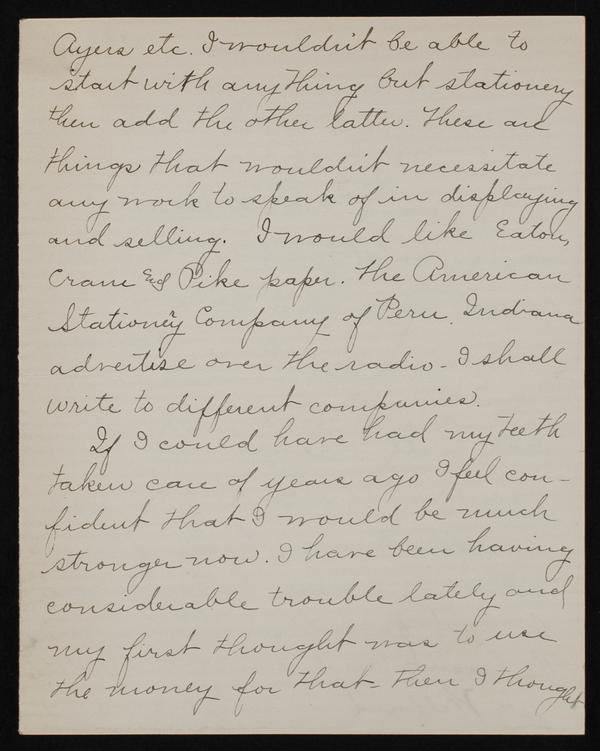 Ayers etc. I wouldn't be able to
start with anything but stationery
then add the other latter. These are
things that wouldn't necessitate
any work to speak of in displaying
and selling. I would like Eaton,
Crane and Pike paper. The American
Stationery Company of Peru, Indiana
advertise over the radio - I shall
write to different companies.
If I could have had my teeth
taken care of years ago I feel con-
fident that I would be much
stronger now. I have been having
considerable trouble lately and
my first thought was to use
the money for that - then I thought